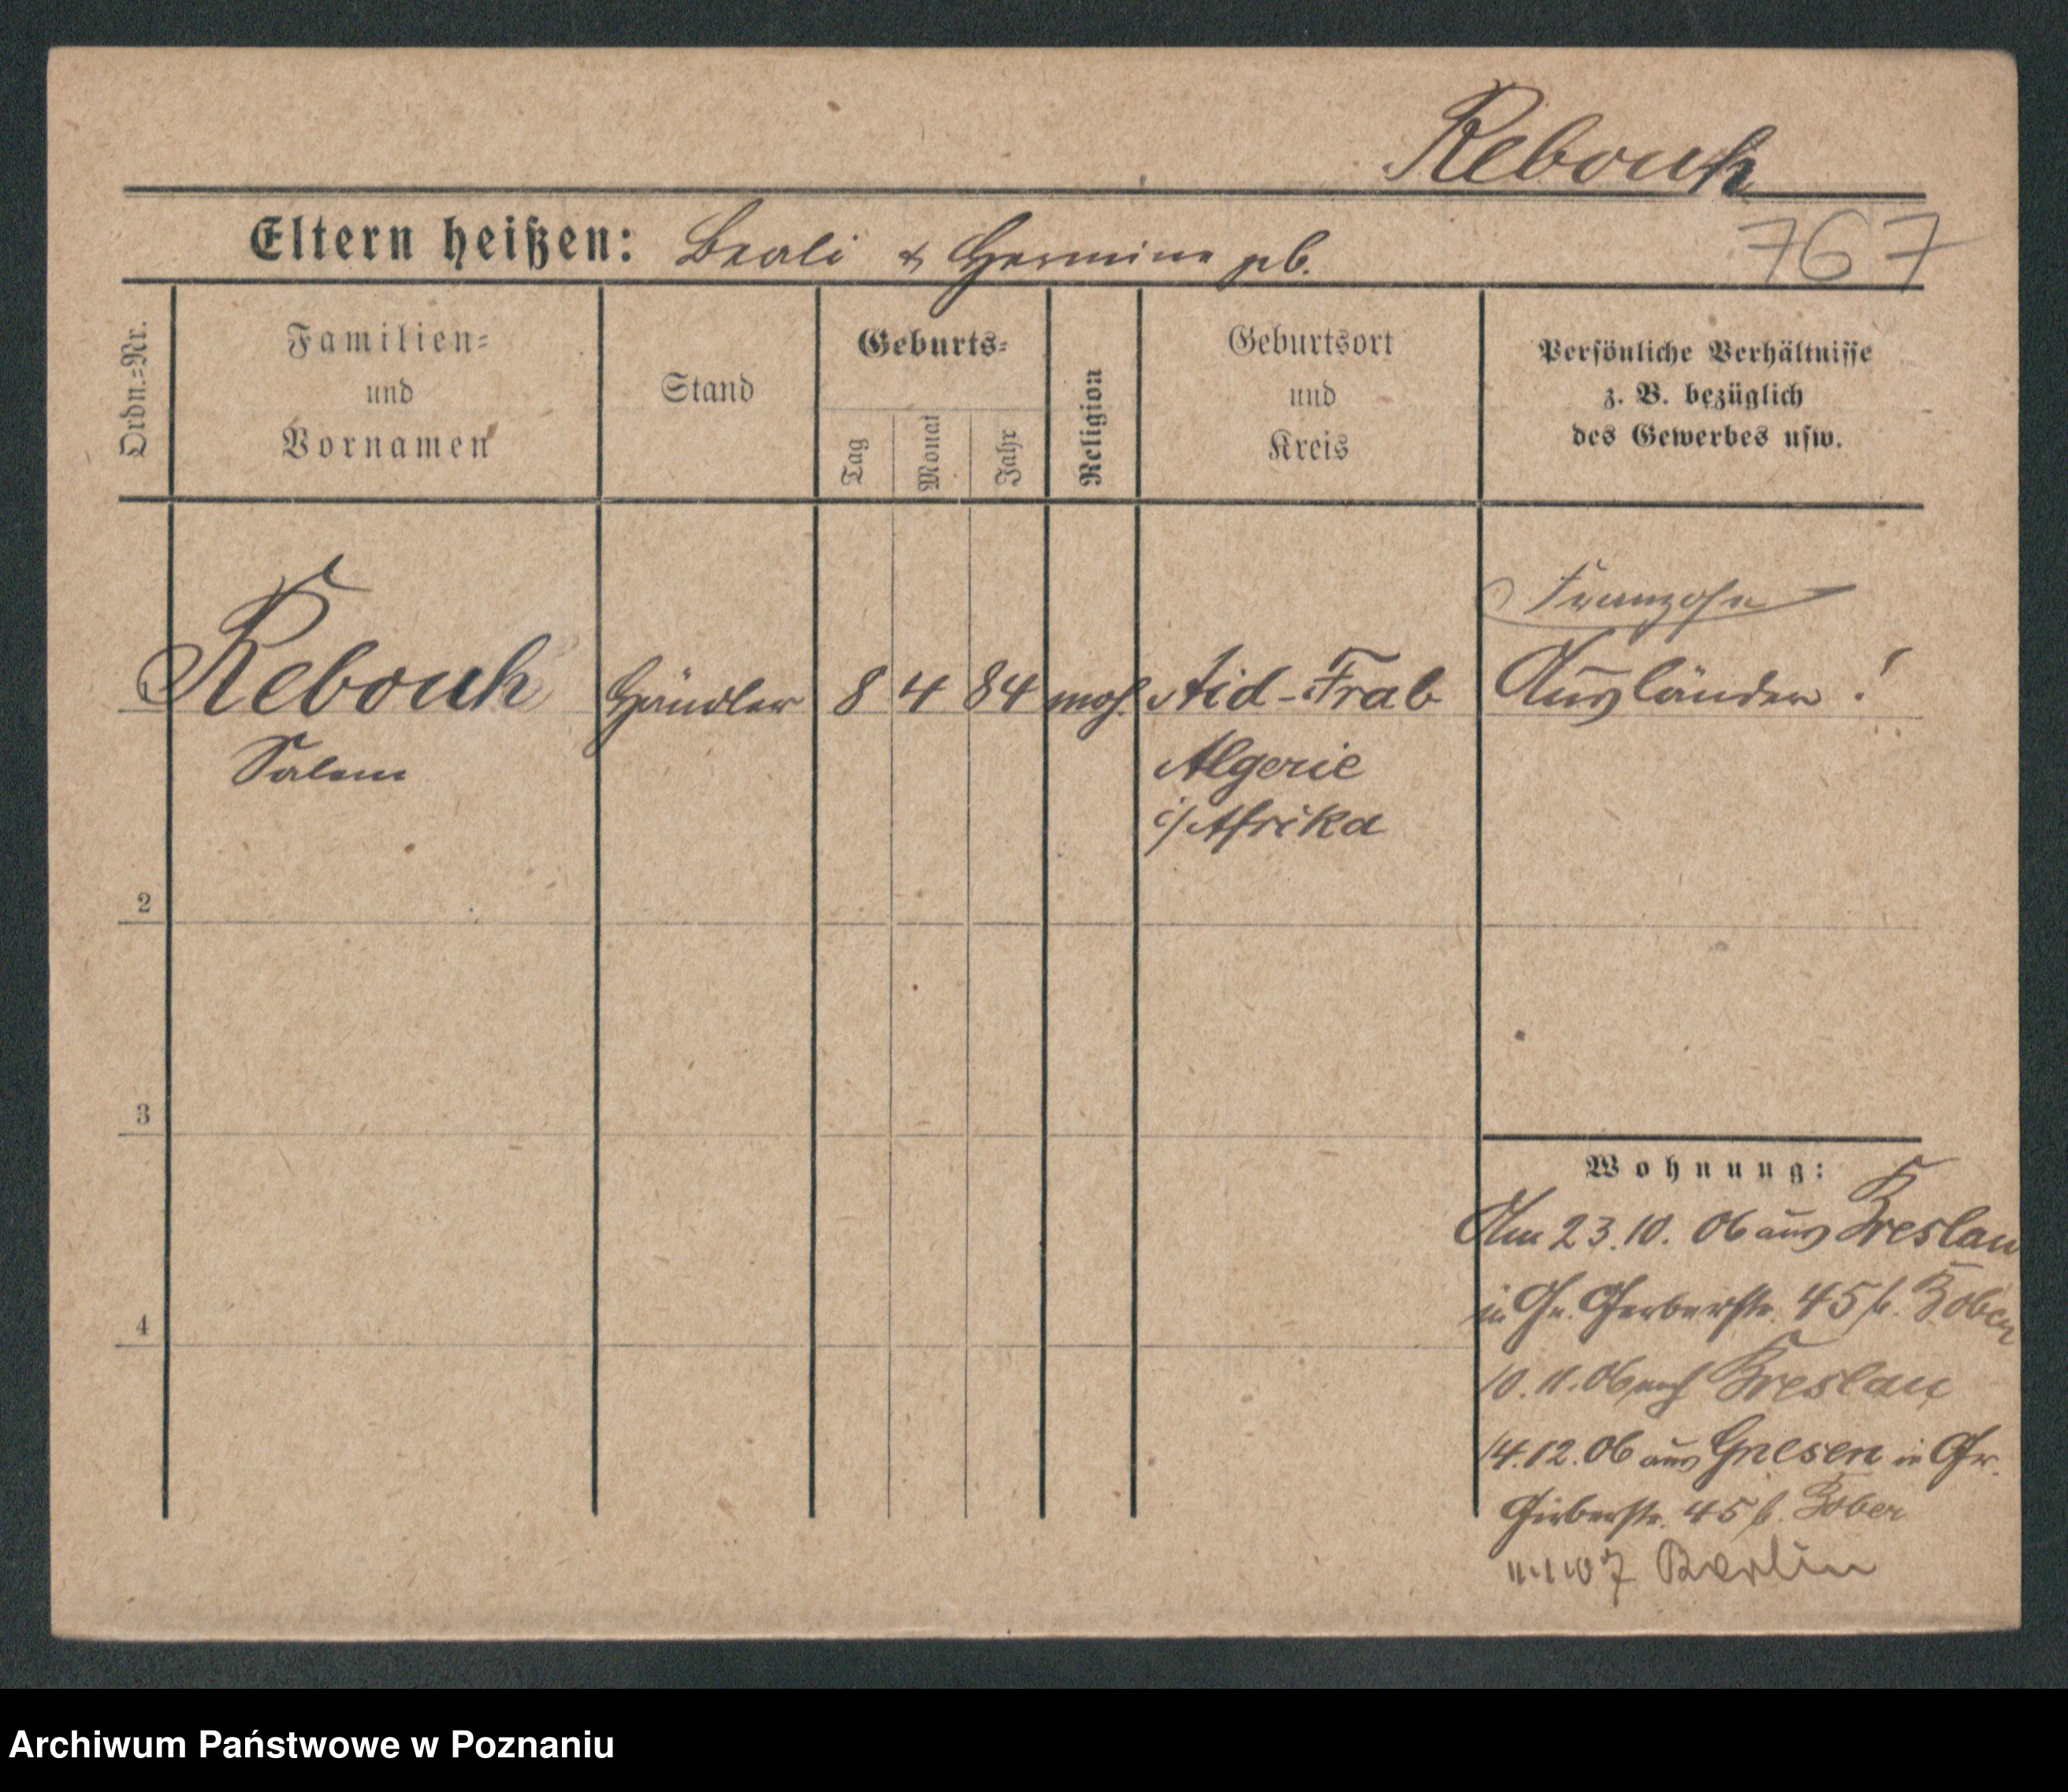 Rebouh
Eltern heißen: Brali & Hermine geb.
767
Ordn.=Nr.
Familien=
und
Vornamen
Stand
Geburts=
Tag
Monat
Jahr
Religion
Geburtsort
und
Kreis
Persönliche Verhältnisse
z. B. bezüglich
des Gewerbes usw.
Franzose
Rebouh Händler 8 4 84 moh. Aid-Frab Ausländer!
Salem Algerie
i/Afrika
2
3
4
Wohnung:
Am 23.10.06 aus Breslau
in Gr. Gerberstr. 45 b. Kober
10.11.06 nach Breslau
14.12.06 aus Gnesen in Gr.
Gerberstr. 45 b. Kober
11.1.07 Berlin
Archiwum Państwowe w Poznaniu